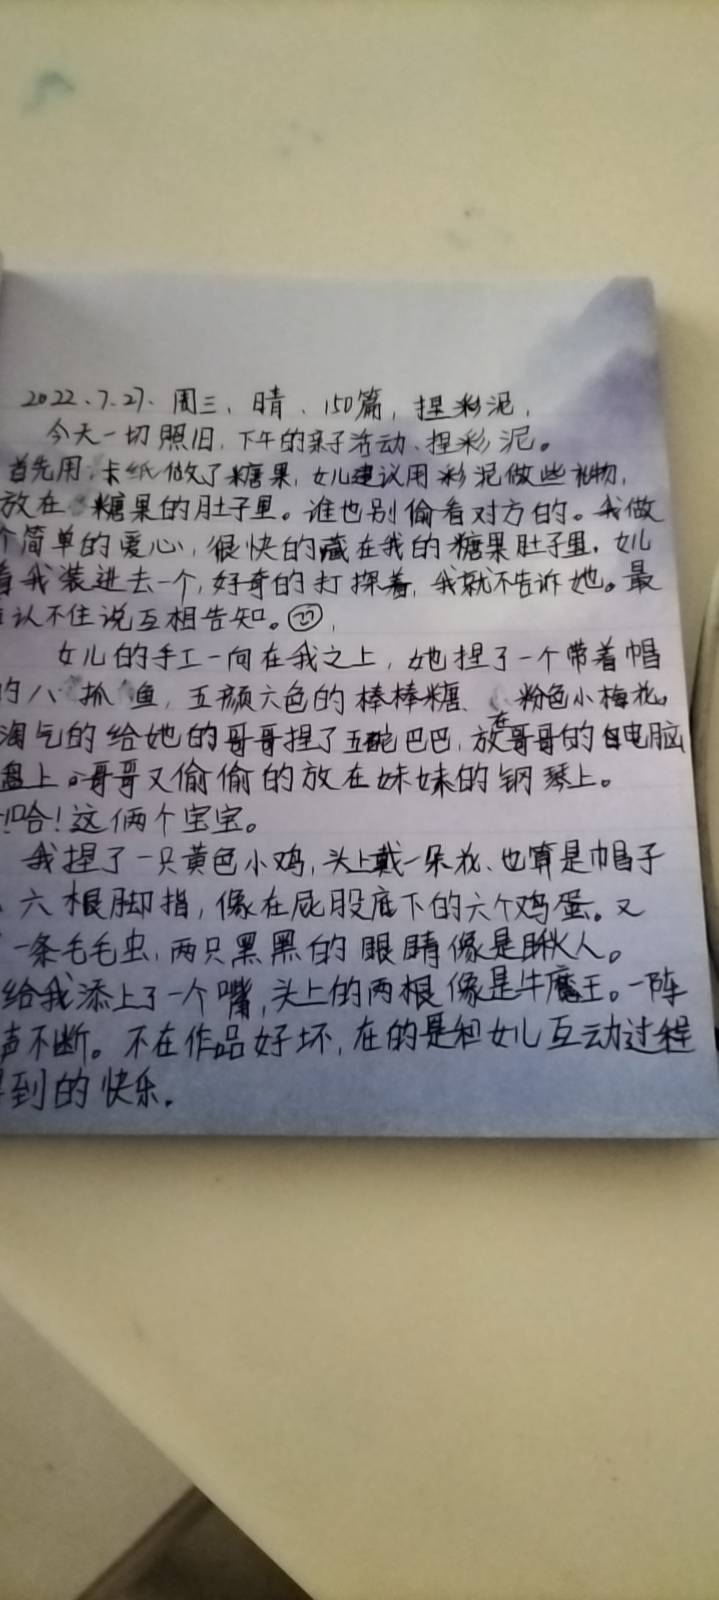 2022、7.27、周三、晴、150篇，捏彩泥，
今天一切照旧，下午的亲子活动、捏彩泥。
首先用卡纸做了糖果，女儿建议用彩泥做些礼物，
放在糖果的肚子里。谁也别偷看对方的。我做
个简单的爱心，很快的藏在我的糖果肚子里，女儿
着我装进去一个，好奇的打探着，我就不告诉她。最
认不住说互相告知。
女儿的手工一向在我之上，她捏了一个带着帽
的八抓鱼，五颜六色的棒棒糖、粉色小梅花。
淘气的给她的哥哥捏了五砣巴巴，放在哥哥的电脑
盘上。哥哥又偷偷的放在妹妹的钢琴上。
哈！这俩个宝宝。
我捏了一只黄色小鸡，头上戴一朵花、也算是帽子
、六根脚指，像在屁股底下的六个鸡蛋。又
一条毛毛虫，两只黑黑的眼睛像是瞅人。
给我添上了一个嘴，头上的两根像是牛魔王。一阵
声不断。不在作品好坏，在的是和女儿互动过程
得到的快乐.